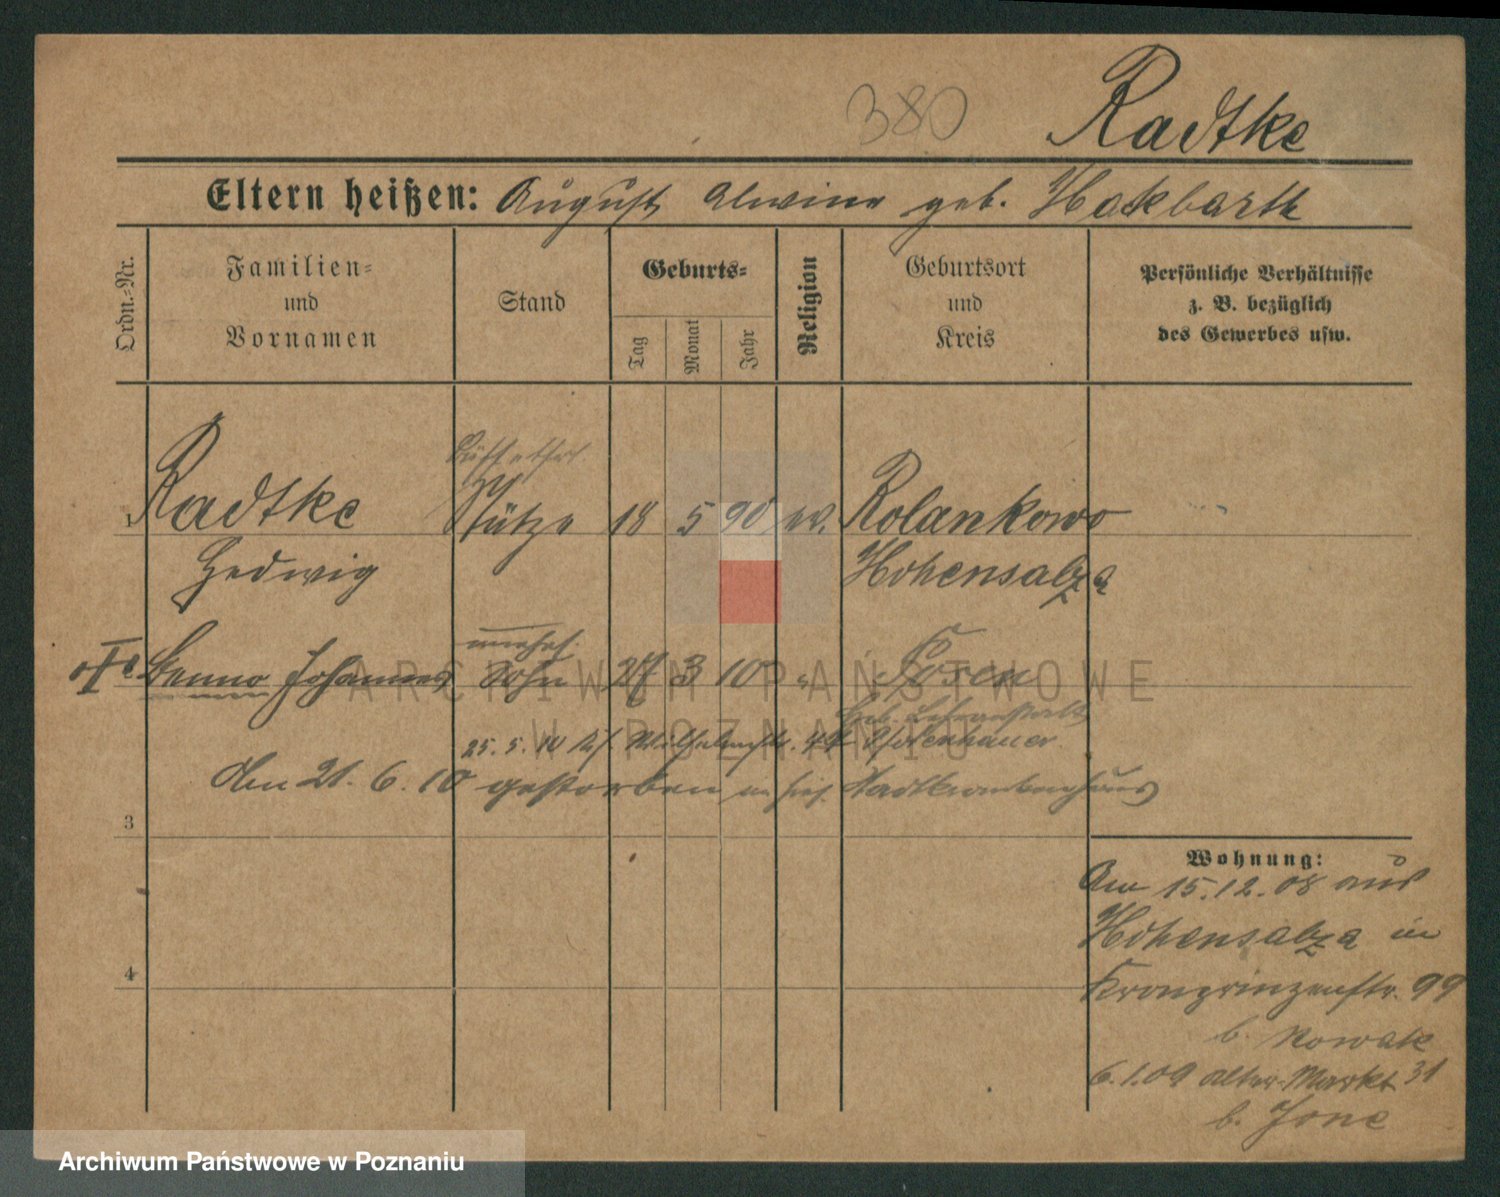 380 Radtke
Eltern heißen: August Alwine geb. Hakbarth
Ordn.-Nr.
Familien-
und
Vornamen
Stand
Geburts-
Tag
Monat
Jahr
Religion
Geburtsort
und
Kreis
Persönliche Verhältnisse
z. B. bezüglich
des Gewerbes usw.
Büffetfrl.
1 Radtke Stütze 18 5 90 ev. Rolankowo
Hedwig Hohensalza
unehel.
Benno Johannes Sohn 27 3 10 " Posen
ARCHIWUM PAŃSTWOWE
W POZNANIU
25. 5. 10
Am 21. 6. 10 gestorben im hies. Stadtkrankenhaus
3
Wohnung:
Am 15.12.08 aus
Hohensalza in
4
Kronprinzenstr. 99
b. Nowak
6.1.09 Alter Markt 31
b. Jone
Archiwum Państwowe w Poznaniu